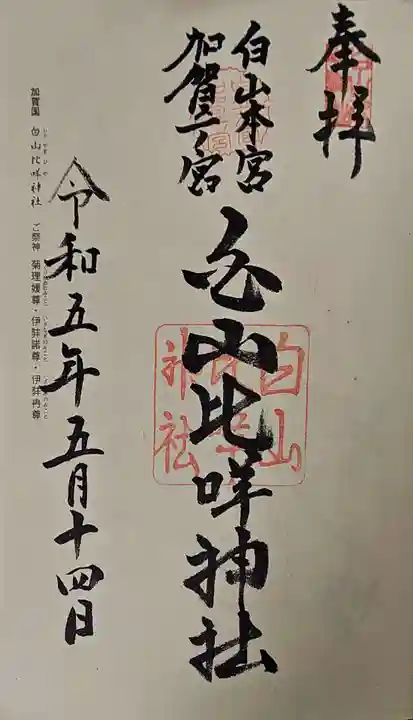 奉拝
白山本宮
加賀一ノ宮
白山比咩神社
白山比咩神社
令和五年五月十四日
加賀国 白山比咩神社 ご祭神 菊理媛尊・伊弉諾尊・伊弉冉尊